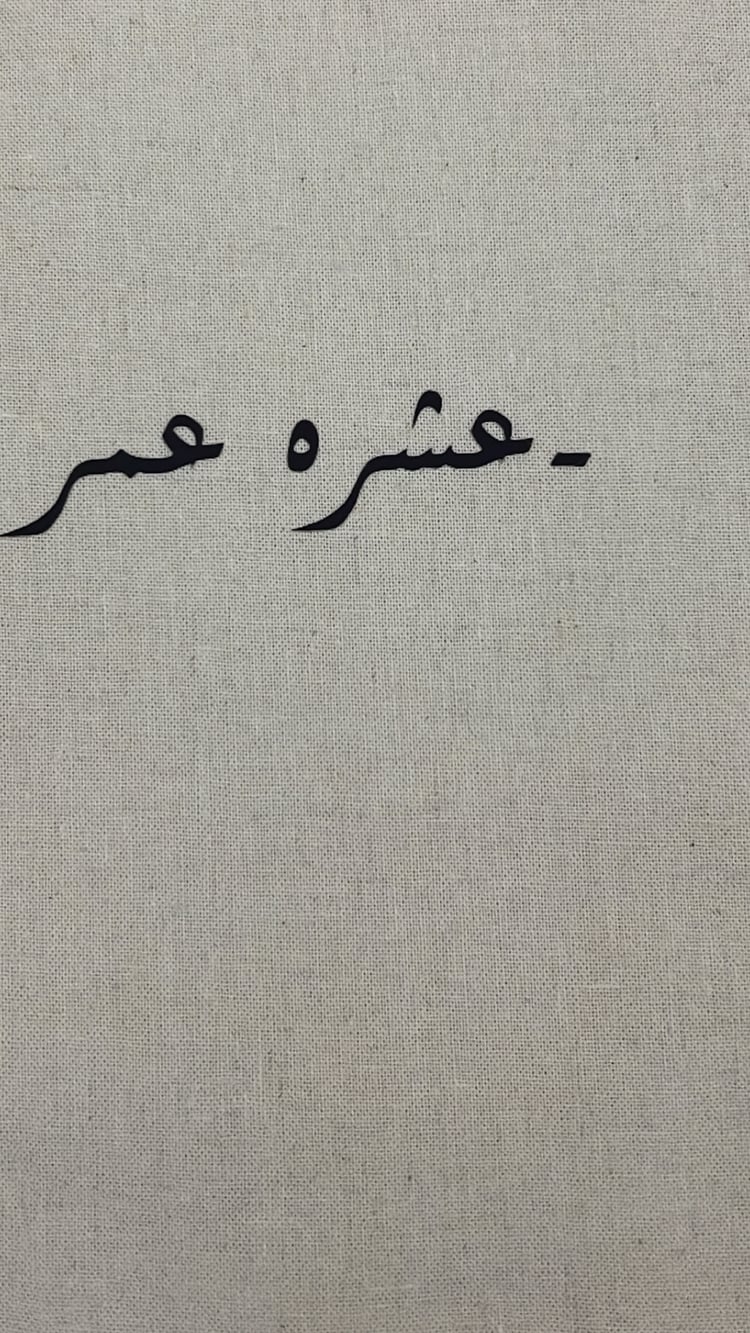 - عشره عمر